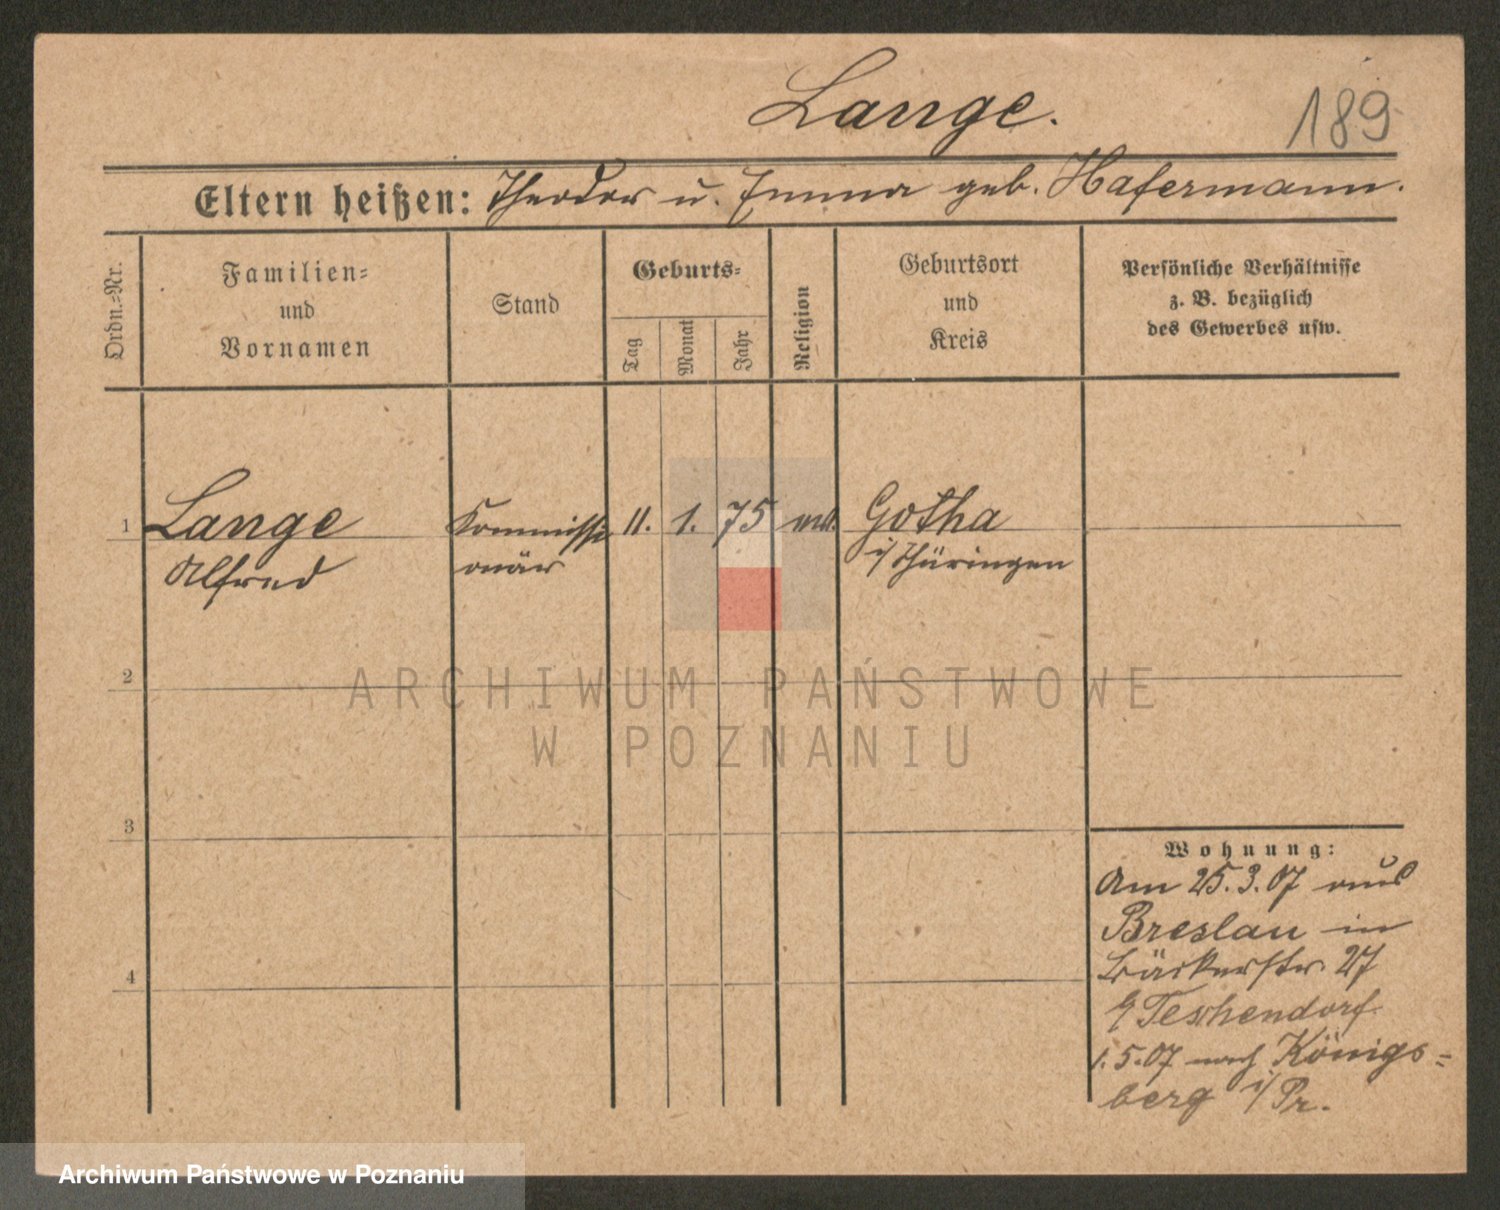 Lange.
189
Eltern heißen: Theodor u. Emma geb. Hafermann.
Ordn.=Nr.
Familien=
und
Vornamen
Stand
Geburts=
Tag
Monat
Jahr
Religion
Geburtsort
und
Kreis
Persönliche Verhältnisse
z. B. bezüglich
des Gewerbes usw.
1 Lange Kommissi 11. 1. 75 Gotha
Alfred onär i/Thüringen
2
3
4
Wohnung:
Am 25.3.07 aus
Breslau in
Bäckerstr. 27
b/ Teschendorf
1.5.07 nach Königs=
berg i/Pr.
ARCHIWUM PAŃSTWOWE
W POZNANIU
Archiwum Państwowe w Poznaniu